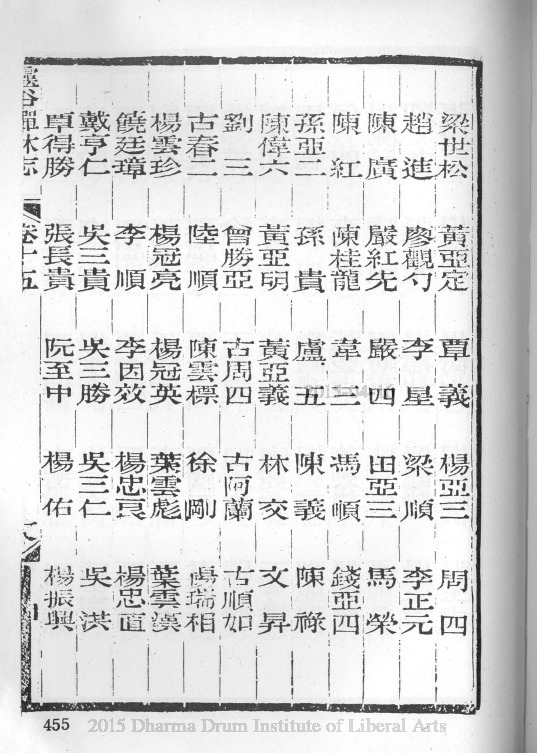 梁世松 黃亞定 覃義 楊亞三 周四
趙進 廖觀勺 李星 梁順 李正元
陳廣 嚴紅先 嚴四 田亞三 馬榮
陳紅 陳桂龍 韋三 馮順 錢亞四
孫亞二 孫貴 盧五 陳義 陳祿
陳偉六 黃亞明 黃亞義 林交 文昇
劉三 曾勝亞 古周四 古阿蘭 古順如
古春二 陸順 陳雲標 徐剛 陽瑞相
楊雲珍 楊冠亮 楊冠英 葉雲彪 葉雲漢
饒廷璋 李順 李因效 楊忠良 楊忠直
戴亨仁 吳三貴 吳三勝 吳三仁 吳洪
覃得勝 張長貴 阮至中 楊佑 楊振興
靈谷禪林志 卷十五
455
2015 Dharma Drum Institute of Liberal Arts